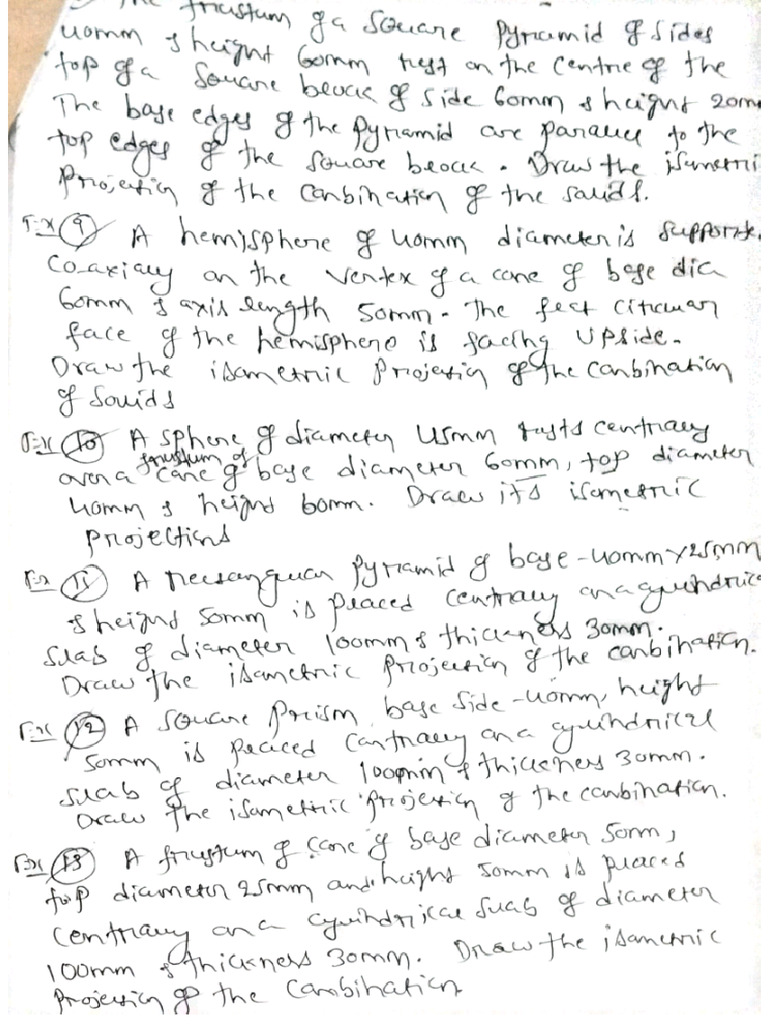 The frustum of a Square Pyramid of sides
40mm & height 60mm rest on the centre of the
top of a Square block of side 60mm & height 20m
The base edges of the Pyramid are parallel to the
top edges of the square block. Draw the isometri
Projection of the combination of the solids.
Ex (9) A hemisphere of 40mm diameter is supporte
Co-axially on the vertex of a cone of base dia
60mm & axis length 50mm. The flat circular
face of the hemisphere is facing upside.
Draw the isometric projection of the combination
of solids
Ex (10) A sphere of diameter 45mm rests centrally
over a frustum of cone of base diameter 60mm, top diameter
40mm & height 60mm. Draw its isometric
projections
Ex (11) A rectangular Pyramid of base-40mm×25mm
& height 50mm is placed centrally on a cylindrica
slab of diameter 100mm & thickness 30mm.
Draw the isometric projection of the combination.
Ex (12) A square Prism base side-40mm, height
50mm is placed centrally on a cylindrical
slab of diameter 100mm & thickness 30mm.
Draw the isometric projection of the combination.
Ex (13) A frustum of cone of base diameter 50m,
top diameter 25mm and height 50mm is placed
centrally on a cylindrical slab of diameter
100mm & thickness 30mm. Draw the isometric
projection of the combination